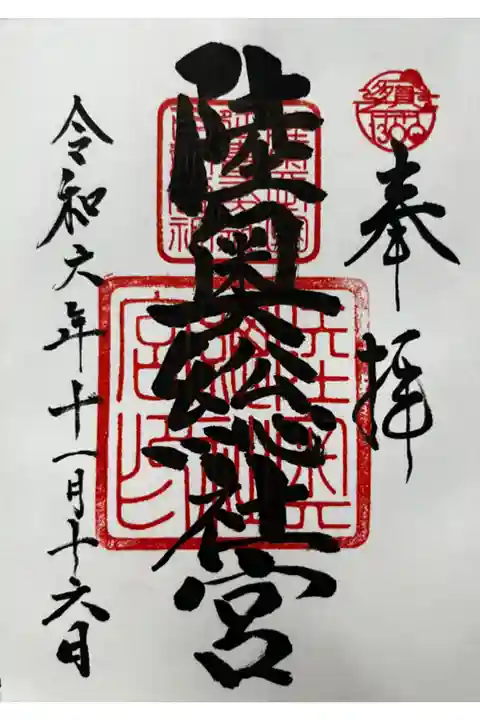 奉拝
多賀城
1300
陸奥総社宮
令和六年十一月十六日